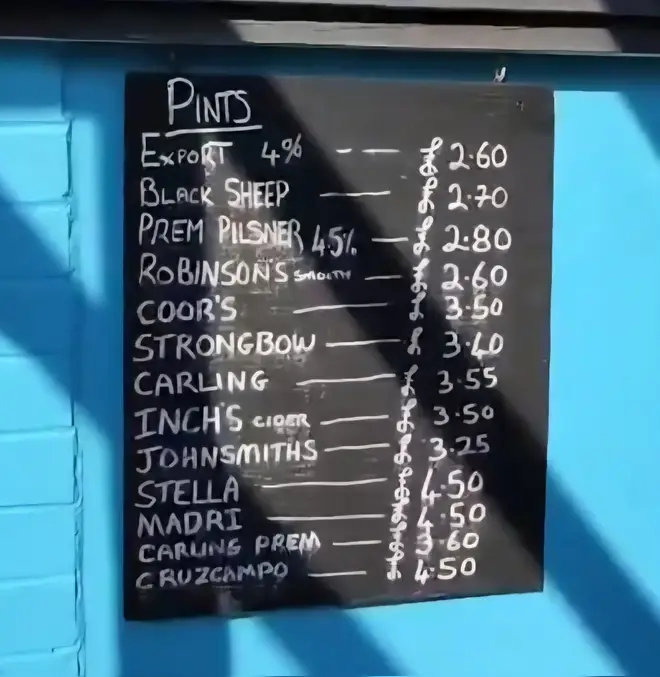 PINTS
EXPORT 4% -- £ 2.60
BLACK SHEEP — £ 2.70
PREM PILSNER 4.5% — £ 2.80
ROBINSON'S SMOOTH — £ 2.60
COOR'S — £ 3.50
STRONGBOW — £ 3.40
CARLING — £ 3.55
INCH'S CIDER — £ 3.50
JOHNSMITHS — £ 3.25
STELLA — £ 4.50
MADRI — £ 4.50
CARLING PREM — £ 3.60
CRUZCAMPO — £ 4.50